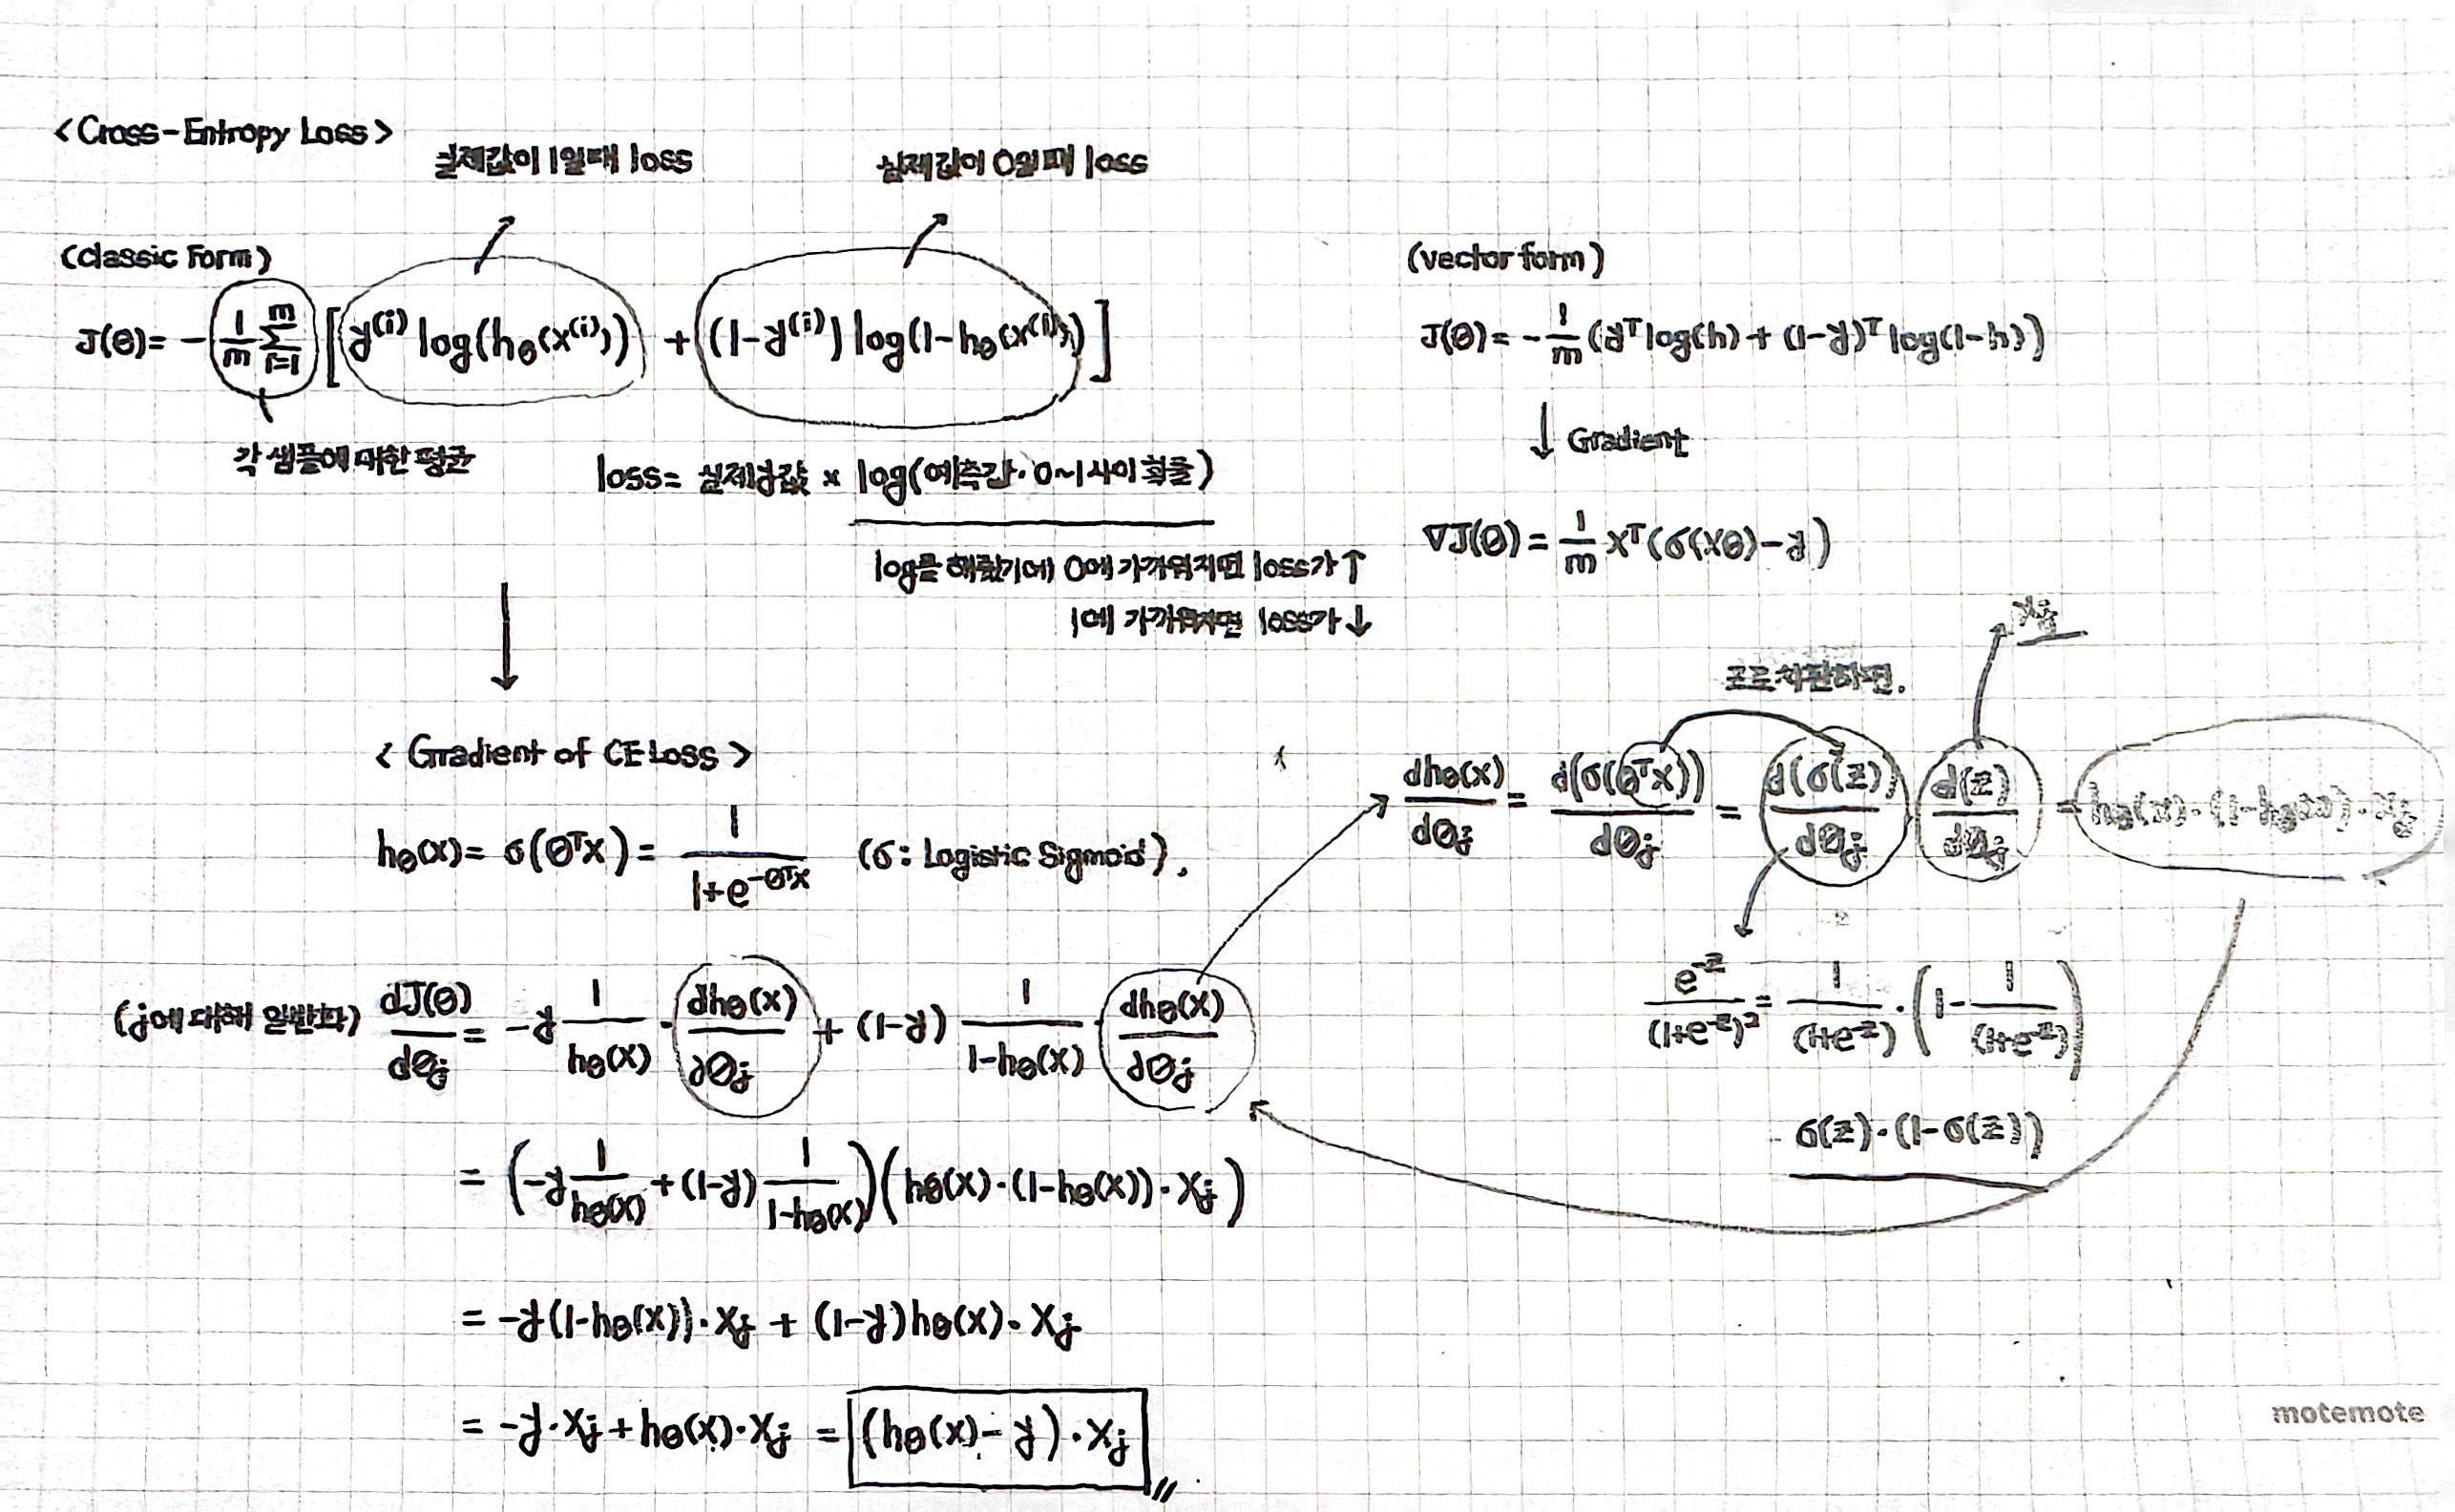 <Cross-Entropy Loss>
실제값이 1일때 loss
실제값이 0일때 loss
(classic Form)
J(θ)= -1/m Σ_{i=1}^{m} [y^(i) log(h_θ(x^(i))) + (1-y^(i)) log(1-h_θ(x^(i)))]
각 샘플에 대한 평균
loss= 실제y값 × log(예측값·0~1사이 확률)
log를 해줬기에 0에 가까워지면 loss가↑
1에 가까워지면 loss가↓
(vector form)
J(θ)= -1/m (y^T log(h) + (1-y)^T log(1-h))
↓ Gradient
∇J(θ)= 1/m X^T(σ(Xθ)-y)
< Gradient of CE Loss >
h_θ(x)= σ(θ^T x)= 1/(1+e^{-θ^T x}) (σ: Logistic Sigmoid).
(j에 대해 일반화) dJ(θ)/dθ_j = -y 1/h_θ(x) · dh_θ(x)/dθ_j + (1-y) 1/(1-h_θ(x)) · dh_θ(x)/dθ_j
= (-y 1/h_θ(x) + (1-y) 1/(1-h_θ(x)))(h_θ(x)·(1-h_θ(x))·x_j)
= -y(1-h_θ(x))·x_j + (1-y)h_θ(x)·x_j
= -y·x_j + h_θ(x)·x_j = (h_θ(x)-y)·x_j
x_j
치환하면.
dh_θ(x)/dθ_j = d(σ(θ^T x))/dθ_j = d(σ(z))/dθ_j d(z)/dθ_j = h_θ(x)·(1-h_θ(x))·x_j
e^{-z}/(1+e^{-z})^2 = 1/(1+e^{-z}) · (1 - 1/(1+e^{-z}))
σ(z)·(1-σ(z))
motemote